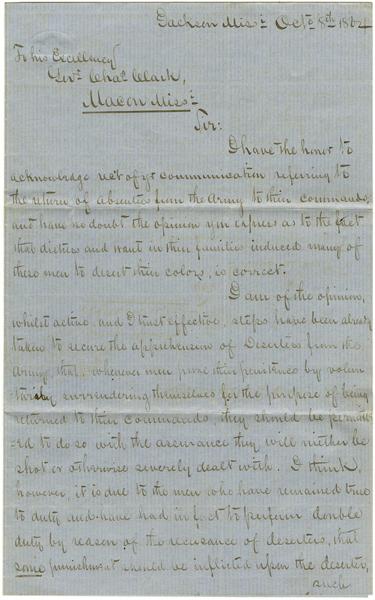 Jackson Miss: Octo 8th 1864
To his Excellency
Govr Chas Clark,
Macon Miss:
Sir:
I have the honor to
acknowledge rect of yr communication referring to
the return of absentees from the Army to their commands,
and have no doubt the opinion you express as to the fact
that distress and want in their families induced many of
these men to desert their colors, is correct.
I am of the opinion,
whilst active, and I trust effective, steps have been already
taken to secure the apprehension of Deserters from the
Army, that, whenever men prove their penitence by volun
tarily surrendering themselves for the purpose of being
returned to their commands, they should be permitt-
=ed to do so with the assurance they will neither be
shot or otherwise severely dealt with. I think,
however, it is due to the men who have remained true
to duty and have had in fact to perform double
duty by reason of the recusance of deserters, that
some punishment should be inflicted upon the deserter,
such